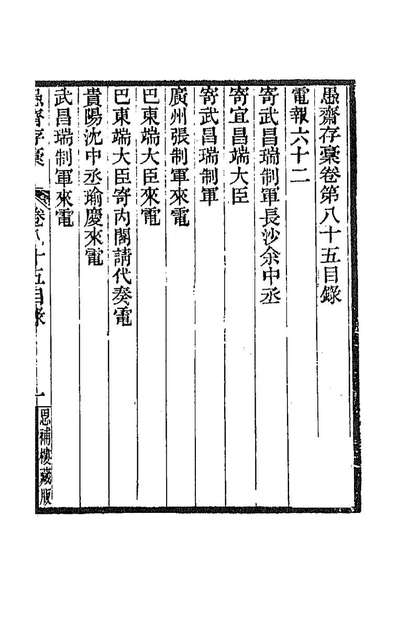 愚齋存稾卷第八十五目錄
電報六十二
寄武昌瑞制軍長沙余中丞
寄宜昌端大臣
寄武昌瑞制軍
廣州張制軍來電
巴東端大臣來電
巴東端大臣寄內閣請代奏電
貴陽沈中丞瑜慶來電
武昌瑞制軍來電
愚齋存稾 卷八十五目錄 一 思補樓藏版